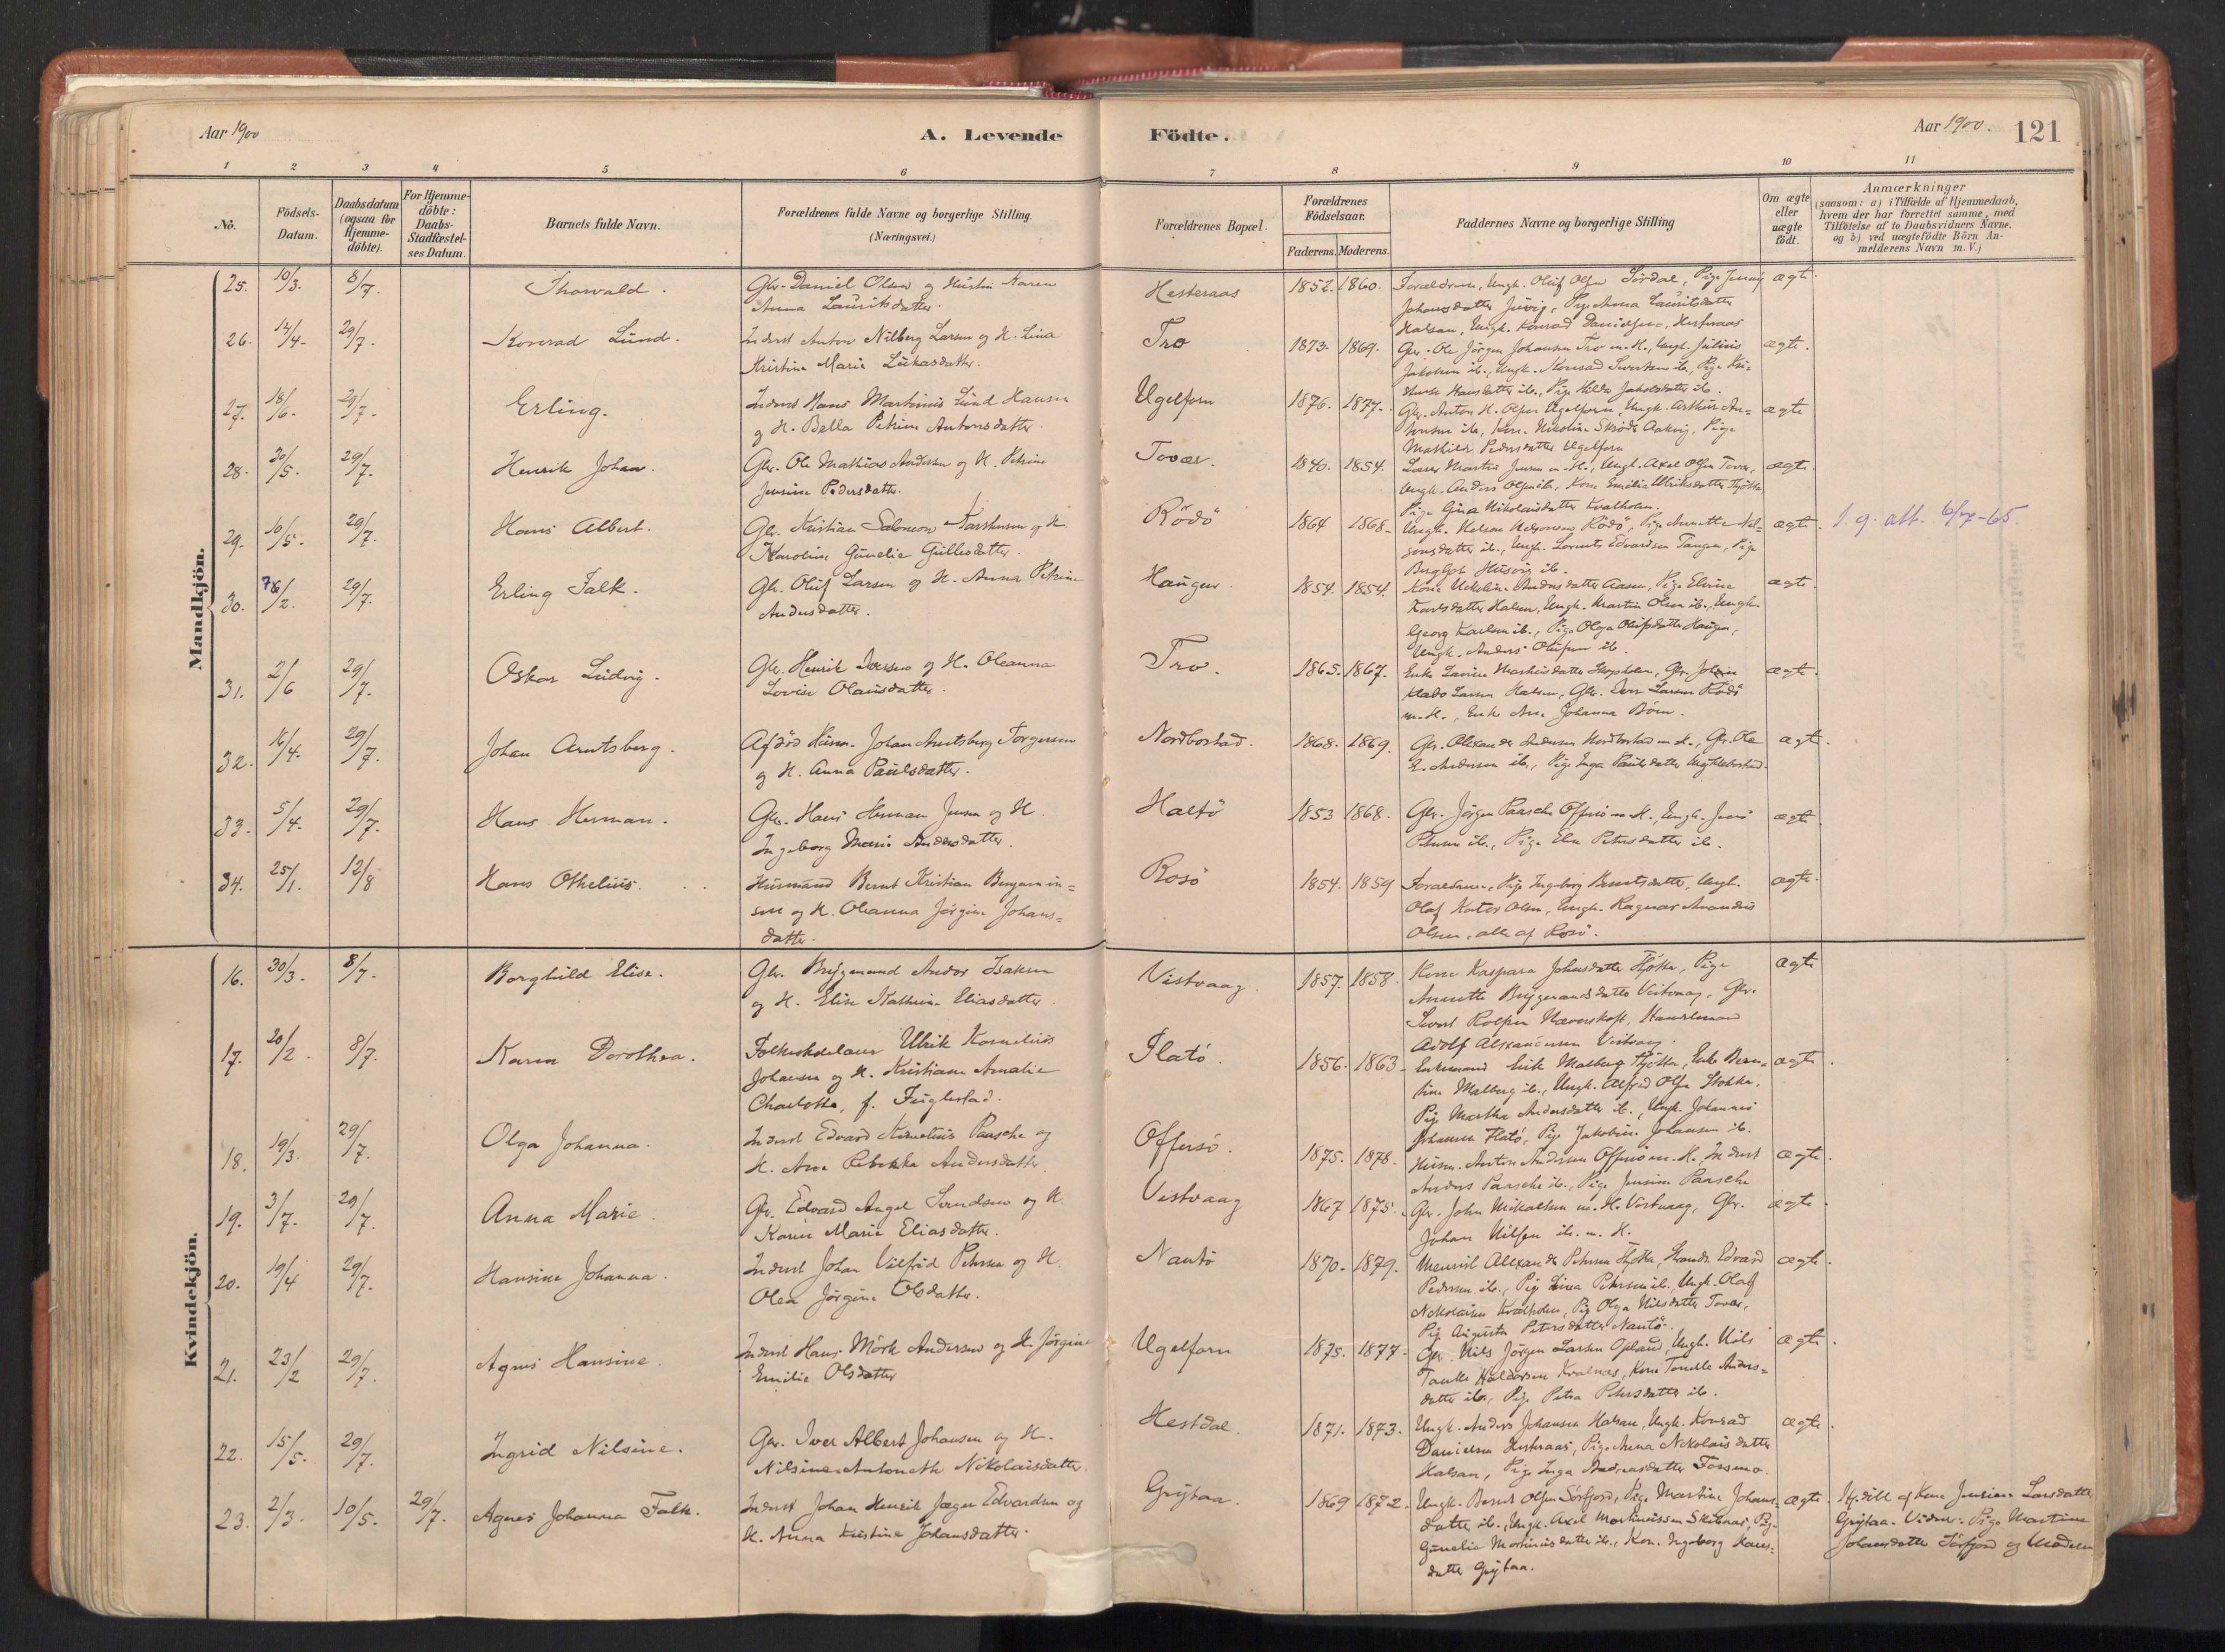 Aar 1900
A. Levende
Födte.
Aar 1900.
121
1 2 3 4 5 6 7 8 9 10 11
No.
Födsels-
Datum.
Daabsdatum
(ogsaa for
Hjemme-
döbte).
For Hjemme-
döbte:
Daabs-
Stadfæstel-
ses Datum.
Barnets fulde Navn.
Forældrenes fulde Navne og borgerlige Stilling.
(Næringsvei.)
Forældrenes Bopæl.
Forældrenes
Födselsaar.
Faderens. Moderens.
Faddernes Navne og borgerlige Stilling
Om ægte
eller
uægte
födt.
Anmærkninger
(saasom: a) i Tilfælde af Hjemmedaab,
hvem der har forrettet samme, med
Tilföielse af to Daabsvidners Navne.
og b) ved uægtefödte Börn An-
melderens Navn m. V.)
Mandkjön.
25. 10/3. 8/7. Thorvald. Gbr. Daniel Olsen og Hustru Karen
Anna Lauritsdatter. Hesteraas 1852. 1860. Forældrene, Ungk. Oluf Olsen
Johansdatter Juvig, Pige Anna Lauritsdatter
Halsan, Ungk. Konrad Danielsen, Hesteraas ægte.
26. 14/4. 29/7. Konrad Lund. Inderst Anton Nilberg Larsen og H. Lina
Kristine Marie Lukasdatter. Tro 1873. 1869. Gbr. Ole Jörgen Johansen Tro m. H., Ungk. Julius
Jakobsen ib., Ungk. Konrad Sivertsen ib., Pige Kri-
Hansdatter ib., Pige Hilda Jakobsdatter ib. ægte.
27. 18/6. 29/7. Erling. Inderst Hans Martinus Lund Hansen
og H. Bella Petrine Antonsdatter. Ugelforn 1876. 1874. Gbr. Anton H. Olsen Ugelforn, Ungk. Arthur An-
tonsen ib., Kone Nikoline Aakvig, Pige
Mathilde Pedersdatter Ugelforn ægte
28. 30/5. 29/7. Henrik Johan. Gbr. Ole Mathias Andersen og H. Petrine
Jensine Pedersdatter. Tovær. 1840. 1854. Lars Martin Jensen m. H., Ungk. Axel Olsen Tovær,
Ungk. Anders Olsen ib., Kone Emilie Ulriksdatter Tjötta,
Pige Gina Nikolaisdatter Kvalholm. ægte.
29. 10/5. 29/7. Hans Albert. Gbr. Kristian Salomon Karstensen og H.
Karoline Gunelie Gullesdatter. Rödö 1864 1868. Ungk. Nelson Nelsonsen Rödö, Pige Annette Nel-
sonsdatter ib., Ungk. Lornts Edvardsen Tangen, Pige
Bergljot Husvig ib. ægte. D. g. att. 6/7-65.
30. 7/2. 29/7. Erling Falk. Gbr. Oluf Larsen og H. Anna Petrine
Andersdatter. Haugen. 1854. 1854. Kone Andersdatter Aasen, Pige Elvine
Karlsdatter Halsen, Ungk. Martin Olsen ib., Ungk.
Georg Karlsen ib., Pige Olga Olufsdatter Haugen,
Ungk. Anders Olufsen ib. ægte.
31. 2/6 29/7. Oskar Ludvig. Gbr. Henrik Iversen og H. Oleanna
Lovise Olausdatter. Tro. 1865. 1867. Enke Lavine Martinsdatter, Gbr. Johan
Larsen Halsen, Gbr. Iver Larsen Rödö
m. H., Enke Ane Johanna Börn. ægte.
32. 16/4. 29/7. Johan Arntsberg. Afdød Husm. Johan Arntsberg Torgersen
og H. Anna Paulsdatter. Nordbostad. 1868. 1869. Gbr. Alexander Andersen Nordbostad m. H., Gbr. Ole
E. Andersen ib., Pige Inga Paulsdatter ægte.
33. 5/4. 29/7. Hans Herman. Gbr. Hans Herman Jensen og H.
Ingeborg Marie Andersdatter. Haltö 1853 1868. Gbr. Jörgen Paasche Offersö m. H., Ungk. Jens
Petersen ib., Pige Elen Petersdatter ib. ægte.
34. 25/1. 12/8 Hans Othelius. Husmand Bernt Kristian Benjamin-
sen og H. Oleanna Jörgine Johans-
datter. Rosö 1854. 1859 Forældrene, Pige Ingeborg Berntsdatter, Ungk.
Olaf Olsen, Ungk. Ragnar
Olsen, alle af Rosö. ægte.
Kvindekjön.
16. 30/3. 8/7. Borghild Elise. Gbr. Brygmand Andor Isaksen
og H. Elise Kathrine Eliasdatter. Vistvaag. 1857. 1858. Kone Kaspara Johnsdatter Tjötta, Pige
Annette Brygmandsdatter Vistvaag, Gbr.
Sivert Rolfsen Handelsmand
Adolf Alexandersen Vistvaag. ægte
17. 20/2. 8/7. Karen Dorothea. Folkeskolelærer Ulrik Kornelius
Johansen og H. Kristiane Amalie
Charlotte, f. Fuglestad. Flatö. 1856. 1863. Enkemand Erik Malberg Tjötta, Enke Bern-
tine Malberg ib., Ungk. Alfred Olsen Stokka,
Pige Martha Andersdatter ib., Ungk. Johannes
Johansen Flatö, Pige Jakobine Johansen ib. ægte.
18. 19/3. 29/7. Olga Johanna. Inderst Edvard Kornelius Paasche og
H. Ane Rebekka Andersdatter. Offersö. 1875. 1878. Husm. Anton Andersen Offersö m. H., Inderst
Anders Paasche ib., Pige Jensine Paasche ægte.
19. 3/7. 29/7. Anna Marie. Gbr. Edvard Angel Svendsen og H.
Karen Marie Eliasdatter. Vistvaag 1867 1875. Gbr. John Mikalsen m. H. Vistvaag, Gbr.
Johan Nilsen ib. m. H. ægte.
20. 19/4 29/7. Hansine Johanna. Inderst Johan Vilfred Petersen og H.
Olea Jörgine Olsdatter. Nautö 1870. 1879. Alexander Petersen Tjötta, Edvard
Pedersen ib., Pige Lina Petersen ib., Ungk. Olaf
Nikolaisen Kvalholm, Pige Olga Nilsdatter Tovær,
Pige Augusta Petersdatter Nautö. ægte.
21. 23/2 29/7. Agnes Hansine. Inderst Hans Mörk Andersen og H. Jörgine
Emilie Olsdatter Ugelforn 1875. 1877. Gbr. Nils Jörgen Larsen Opland, Ungk. Nils
Haldorsen Kvalnes, Kone Anders-
datter ib., Pige Petra Petersdatter ib. ægte.
22. 15/5. 29/7. Ingrid Nilsine. Gbr. Iver Albert Johansen og H.
Nilsine Antonette Nikolaisdatter. Hestdal. 1871. 1873. Ungk. Anders Johansen Halsan, Ungk. Konrad
Danielsen Hesteraas, Pige Anna Nikolaisdatter
Halsan, Pige Inga Andreasdatter Forsmo. ægte.
23. 2/3. 10/5. 29/7. Agnes Johanna Falk. Inderst Johan Henrik Jæger Edvardsen og
H. Anna Kristine Johansdatter. Grytaa. 1869 1872. Ungk. Bernt Olsen Sörfjord, Pige Martine Johans-
datter ib., Ungk. Axel Martinussen Skibaas, Pige
Gunelie Martinusdatter ib., Kone Ingeborg Hans-
datter Grytaa. ægte. Hj.döbt af Kone Jensine Larsdatter
Grytaa. Vidner: Pige Martine
Johansdatter Sörfjord og Moderen